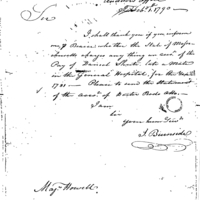 Feby 1, 1790
Sir
I shall thank you if you inform
me, if Bearer whether the State of Massa
chusetts charges any thing on acco.t of the
Pay of Daniel Shute late a Mate
in the General Hospital, for the Year
1781 — Please to send the Statement
of the acco.t of Doctor
I am
Sir
your
J. Burnside
Maj.r Howell